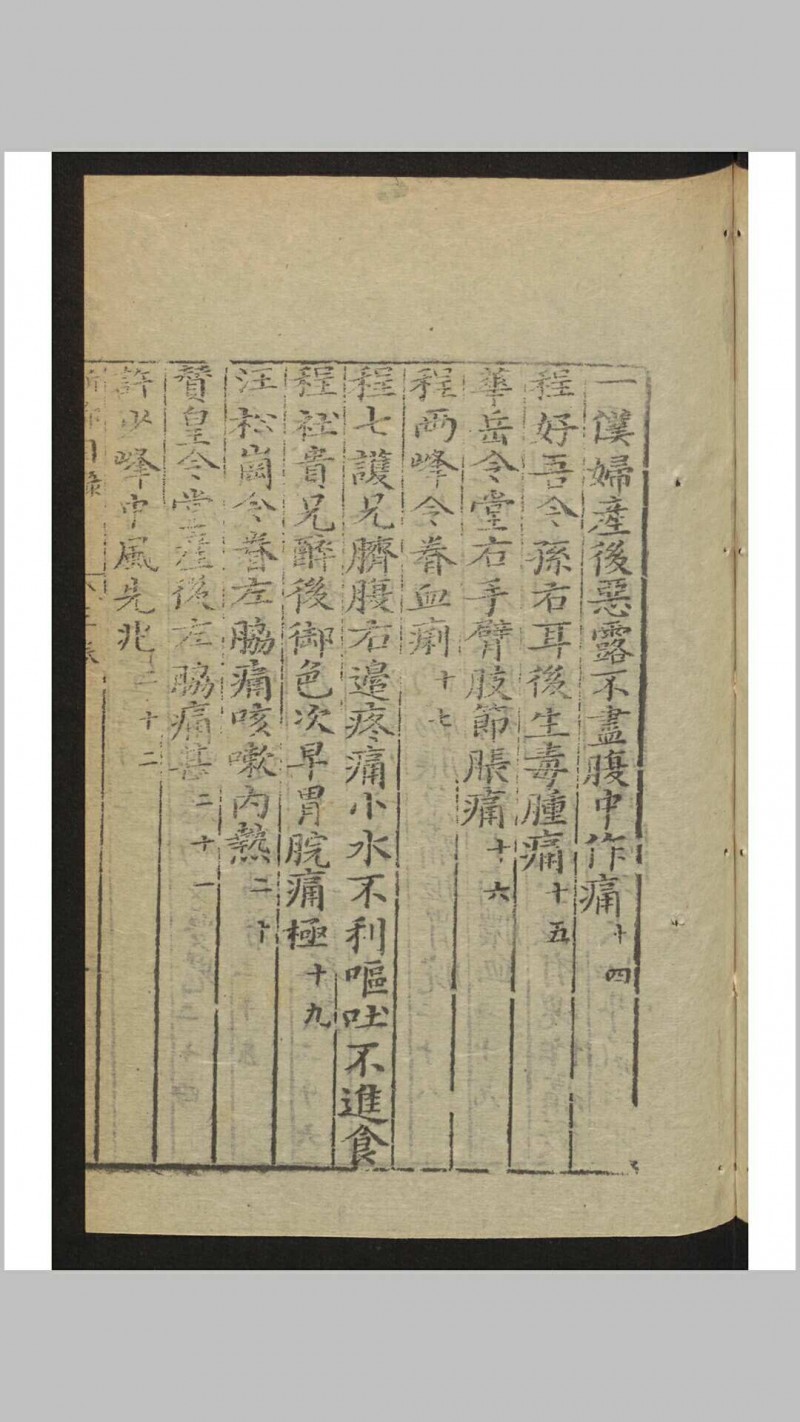 一僕婦產後惡露不盡腹中作痛十四
程好吾令孫右耳後生毒腫痛十五
華岳令堂右手臂肢節脹痛十六
程兩峰令眷血痢十七
程七護兄臍腹右邊疼痛小水不利嘔吐不進食
程社貴兄醉後御色次早胃脘痛極十九
汪松崗令眷左脇痛咳嗽內熱二十
賛皇令堂產後左脇痛甚二十一
許少峰中風先兆二十二